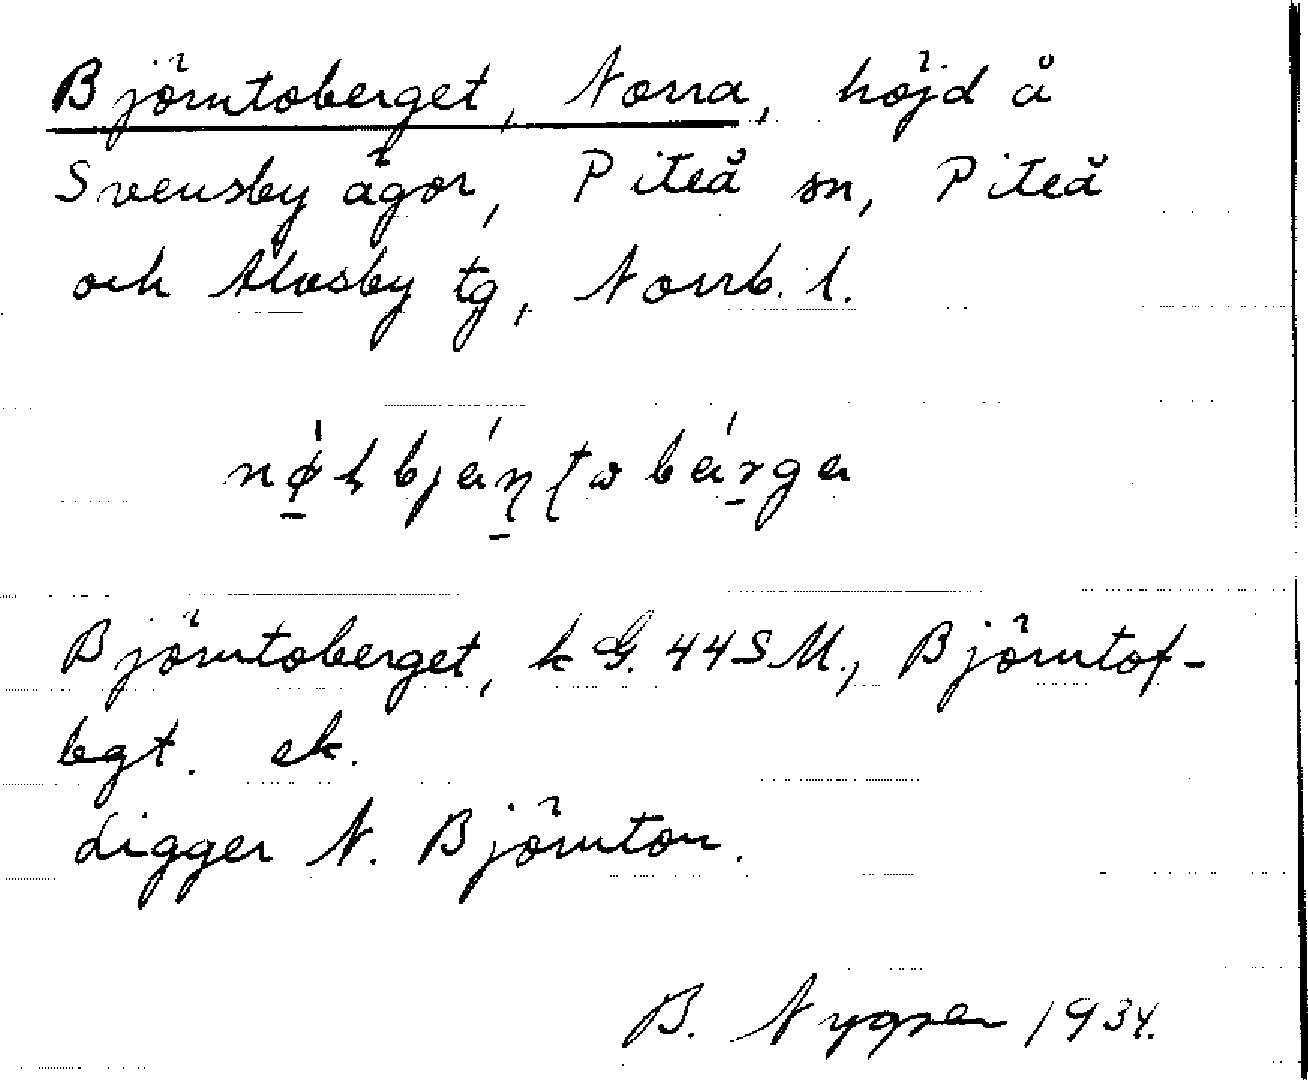 Björntoberget, Norra, höjd å
Svensby ägor, Piteå sn, Piteå
och Älvsby tg, Norrb. l.
Björntoberget, k G. 44SM., Björntof-
bgt. ek.
Ligger N. Björnton.
B. Nygren 1934.